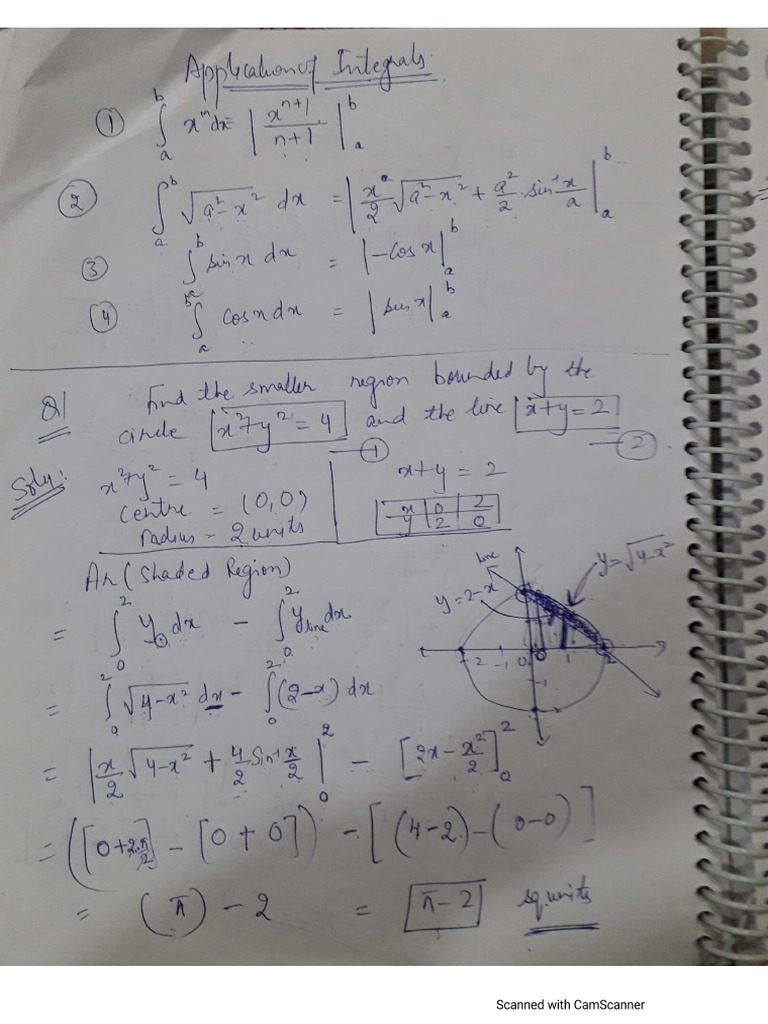 Application of Integrals.
① ∫_a^b x^n dx = | x^{n+1} / n+1 |_a^b
② ∫_a^b √(a²-x²) dx = | x/2 √(a²-x²) + a²/2 sin⁻¹ x/a |_a^b
③ ∫_a^b sin x dx = |-cos x|_a^b
④ ∫_a^b cos x dx = |sin x|_a^b
Q1 Find the smaller region bounded by the
circle x²+y²=4 and the line x+y=2
① ②
Soln: x²+y²=4
centre = (0,0)
radius = 2 units
x+y = 2
x 0 2
y 2 0
Ar (Shaded Region)
= ∫_0^2 y dx - ∫_0^2 y_line dx
= ∫_0^2 √(4-x²) dx - ∫_0^2 (2-x) dx
= | x/2 √(4-x²) + 4/2 sin⁻¹ x/2 |_0^2 - [2x - x²/2]_0^2
= ([0+2.π/2] - [0+0]) - [(4-2)-(0-0)]
= (π) - 2 = π-2 sq units
line
y=√(4-x²)
y=2-x
-2 -1 0 1 2
-1
Scanned with CamScanner